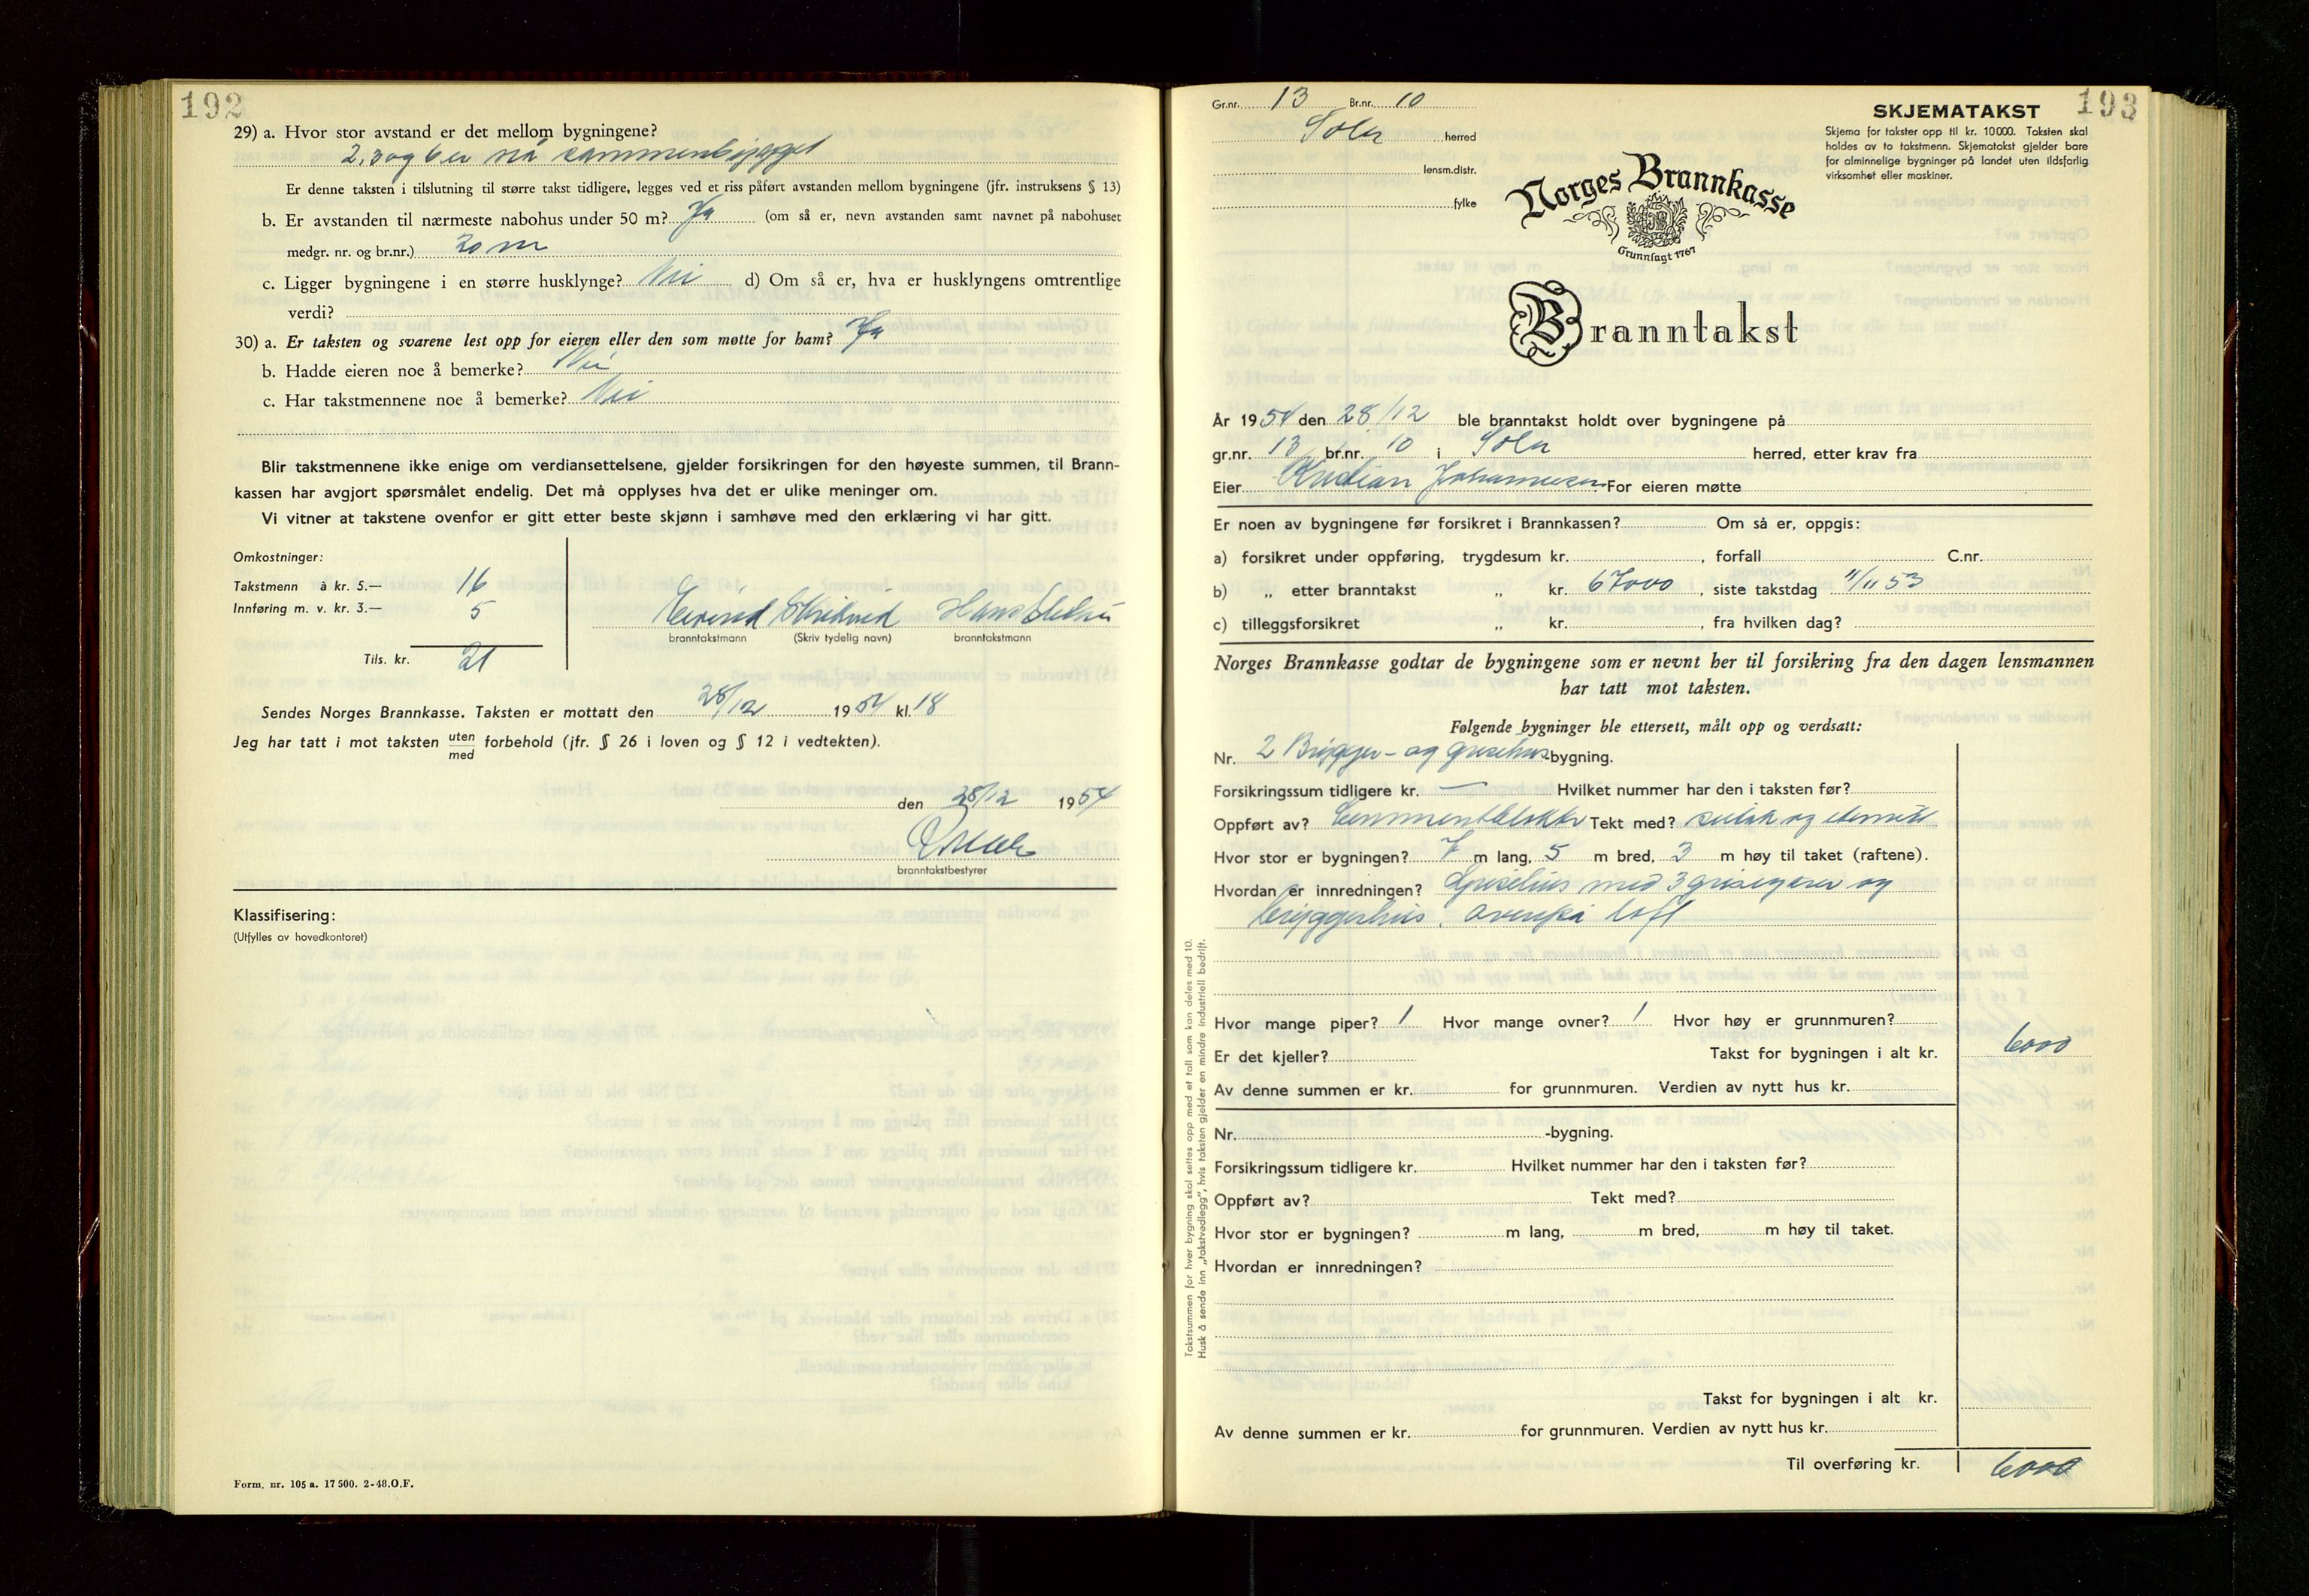 192
29) a. Hvor stor avstand er det mellom bygningene?
2, 3 og 6 er nå sammenbygget
Er denne taksten i tilslutning til større takst tidligere, legges ved et riss påført avstanden mellom bygningene (jfr. instruksens § 13)
b. Er avstanden til nærmeste nabohus under 50 m? Ja (om så er, nevn avstanden samt navnet på nabohuset
medgr. nr. og br.nr.) 30 m
c. Ligger bygningene i en større husklynge? Nei d) Om så er, hva er husklyngens omtrentlige
verdi?
30) a. Er taksten og svarene lest opp for eieren eller den som møtte for ham? Ja
b. Hadde eieren noe å bemerke? Nei
c. Har takstmennene noe å bemerke? Nei
Blir takstmennene ikke enige om verdiansettelsene, gjelder forsikringen for den høyeste summen, til Brann-
kassen har avgjort spørsmålet endelig. Det må opplyses hva det er ulike meninger om.
Vi vitner at takstene ovenfor er gitt etter beste skjønn i samhøve med den erklæring vi har gitt.
Omkostninger:
Takstmenn à kr. 5.— 16
Innføring m. v. kr. 3.— 5
Eivind
branntakstmann (Skriv tydelig navn) branntakstmann
Tils. kr. 21
Sendes Norges Brannkasse. Taksten er mottatt den 28/12 1954 kl. 18
Jeg har tatt i mot taksten uten/med forbehold (jfr. § 26 i loven og § 12 i vedtekten).
den 28/12 1954
branntakstbestyrer
Klassifisering:
(Utfylles av hovedkontoret)
Form. nr. 105 a. 17 500. 2-48. O.F.
193
Gr.nr. 13 Br.nr. 10
Sola herred
lensm.distr.
fylke
SKJEMATAKST
Skjema for takster opp til kr. 10 000. Taksten skal
holdes av to takstmenn. Skjematakst gjelder bare
for alminnelige bygninger på landet uten ildsfarlig
virksomhet eller maskiner.
Norges Brannkasse
Grunnlagt 1767
Branntakst
År 1954 den 28/12 ble branntakst holdt over bygningene på
gr.nr. 13 br.nr. 10 i Sola herred, etter krav fra
Eier Kristian Johannesen For eieren møtte
Er noen av bygningene før forsikret i Brannkassen? Om så er, oppgis:
a) forsikret under oppføring, trygdesum kr. , forfall C.nr.
b) „ etter branntakst „ kr. 67000 , siste takstdag 11/11 53
c) tilleggsforsikret „ kr. , fra hvilken dag?
Norges Brannkasse godtar de bygningene som er nevnt her til forsikring fra den dagen lensmannen
har tatt mot taksten.
Følgende bygninger ble ettersett, målt opp og verdsatt:
Nr. 2 Brygger- og grisehus-bygning.
Forsikringssum tidligere kr. — Hvilket nummer har den i taksten før?
Oppført av? Cementblokker Tekt med? og eternitt
Hvor stor er bygningen? 7 m lang, 5 m bred, 3 m høy til taket (raftene).
Hvordan er innredningen? Grisehus med 3 og
bryggerhus. loft
Hvor mange piper? 1 Hvor mange ovner? 1 Hvor høy er grunnmuren?
Er det kjeller? Takst for bygningen i alt kr. 6000
Av denne summen er kr. for grunnmuren. Verdien av nytt hus kr.
Nr. -bygning.
Forsikringssum tidligere kr. Hvilket nummer har den i taksten før?
Oppført av? Tekt med?
Hvor stor er bygningen? m lang, m bred, m høy til taket.
Hvordan er innredningen?
Takst for bygningen i alt kr.
Av denne summen er kr. for grunnmuren. Verdien av nytt hus kr.
Til overføring kr. 6000
Takstsummen for hver bygning skal settes opp med et tall som kan deles med 10.
Husk å sende inn „takstvedlegg", hvis taksten gjelder en mindre industriell bedrift.